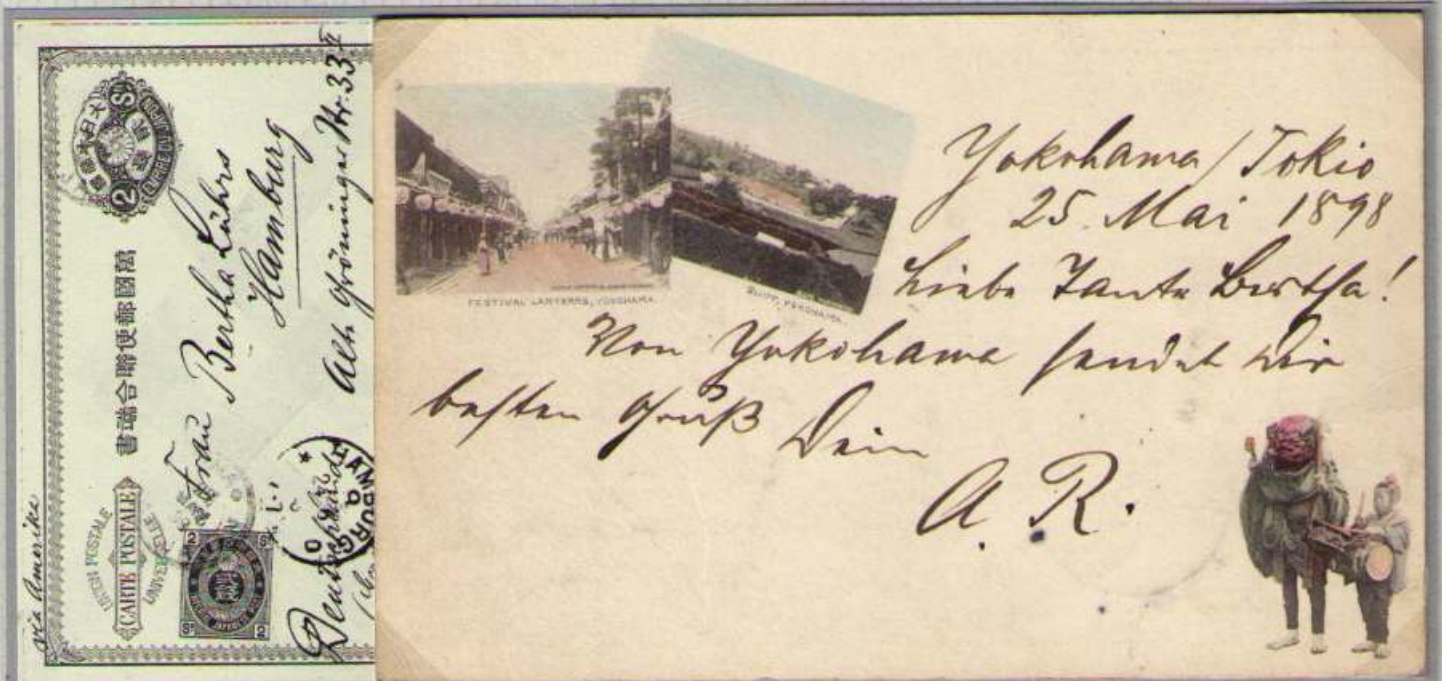 via Amerika
UNION POSTALE
UNIVERSELLE
CARTE POSTALE
萬國郵便聯合端書
大日本帝國
EMPIRE DU JAPON
2 Sn
Frau Bertha Lührs
Hamburg
Alte Gröninger Str. 33 II
Deutschland
HAMBURG
FESTIVAL LANTERNS, YOKOHAMA.
BLUFF, YOKOHAMA.
Yokohama/Tokio
25. Mai 1898
Liebe Tante Bertha!
Von Yokohama sendet Dir
besten Gruß Dein
A. R.